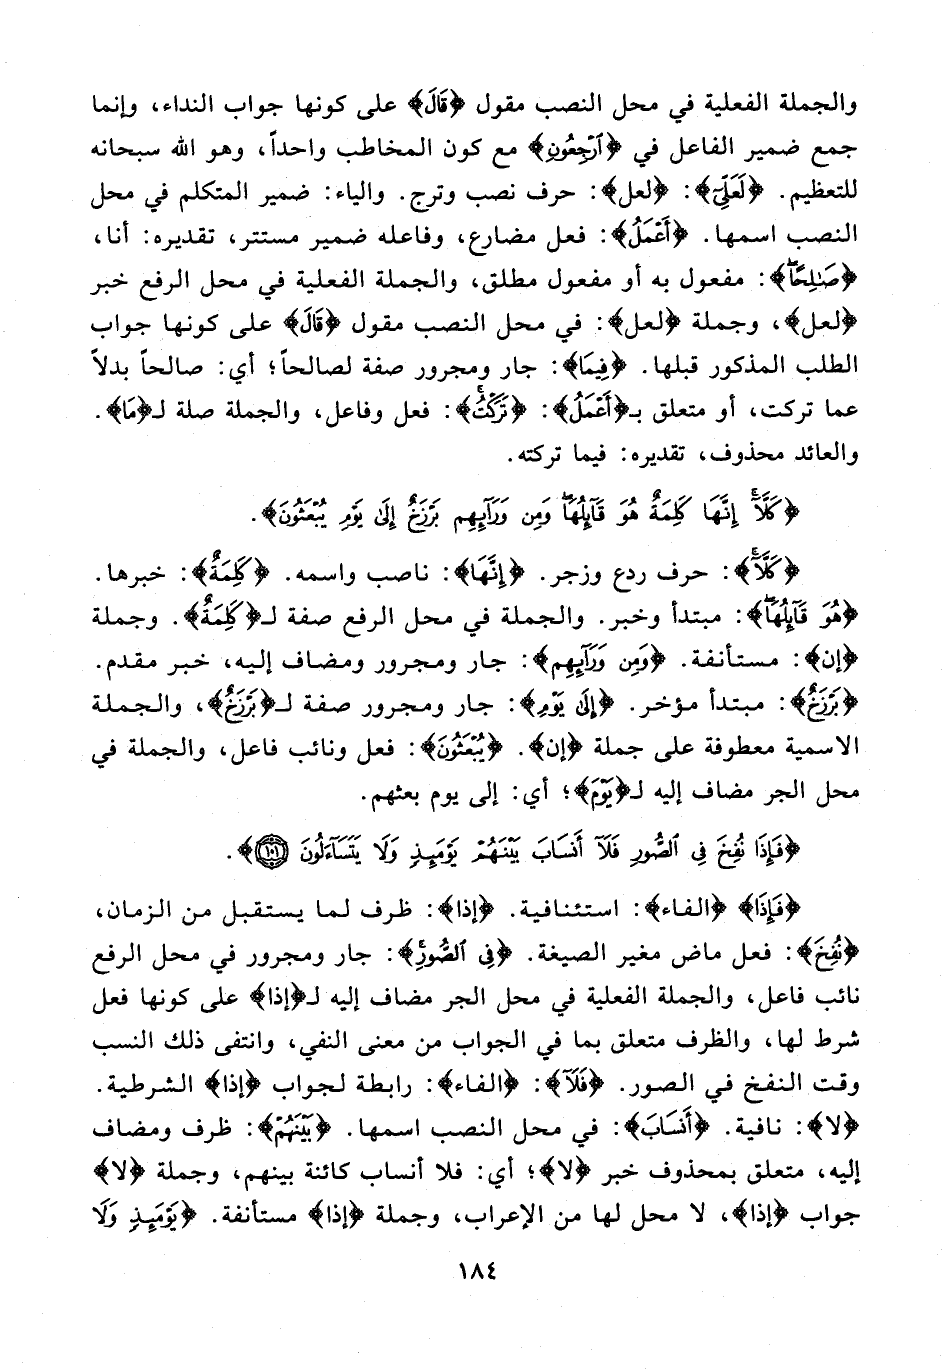 والجملة الفعلية في محل النصب مقول ﴿قَالَ﴾ على كونها جواب النداء، وإنما
جمع ضمير الفاعل في ﴿ٱرْجِعُونِ﴾ مع كون المخاطب واحداً، وهو الله سبحانه
للتعظيم. ﴿لَعَلِّيٓ﴾: ﴿لعل﴾: حرف نصب وترج. والياء: ضمير المتكلم في محل
النصب اسمها. ﴿أَعْمَلُ﴾: فعل مضارع، وفاعله ضمير مستتر، تقديره: أنا،
﴿صَـٰلِحًاۖ﴾: مفعول به أو مفعول مطلق، والجملة الفعلية في محل الرفع خبر
﴿لعل﴾، وجملة ﴿لعل﴾: في محل النصب مقول ﴿قَالَ﴾ على كونها جواب
الطلب المذكور قبلها. ﴿فِيمَا﴾: جار ومجرور صفة لصالحاً؛ أي: صالحاً بدلاً
عما تركت، أو متعلق بـ﴿أَعْمَلُ﴾: ﴿تَرَكْتُۚ﴾: فعل وفاعل، والجملة صلة لـ﴿مَا﴾.
والعائد محذوف، تقديره: فيما تركته.
﴿كَلَّآۚ إِنَّهَا كَلِمَةٌ هُوَ قَآئِلُهَاۖ وَمِن وَرَآئِهِم بَرْزَخٌ إِلَىٰ يَوْمِ يُبْعَثُونَ﴾.
﴿كَلَّآۚ﴾: حرف ردع وزجر. ﴿إِنَّهَا﴾: ناصب واسمه. ﴿كَلِمَةٌ﴾: خبرها.
﴿هُوَ قَآئِلُهَاۖ﴾: مبتدأ وخبر. والجملة في محل الرفع صفة لـ﴿كَلِمَةٌ﴾. وجملة
﴿إن﴾: مستأنفة. ﴿وَمِن وَرَآئِهِم﴾: جار ومجرور ومضاف إليه، خبر مقدم.
﴿بَرْزَخٌ﴾: مبتدأ مؤخر. ﴿إِلَىٰ يَوْمِ﴾: جار ومجرور صفة لـ﴿بَرْزَخٌ﴾، والجملة
الاسمية معطوفة على جملة ﴿إن﴾. ﴿يُبْعَثُونَ﴾: فعل ونائب فاعل، والجملة في
محل الجر مضاف إليه لـ﴿يَوْمَ﴾؛ أي: إلى يوم بعثهم.
﴿فَإِذَا نُفِخَ فِي ٱلصُّورِ فَلَآ أَنسَابَ بَيْنَهُمْ يَوْمَئِذٍ وَلَا يَتَسَآءَلُونَ ١٠١﴾.
﴿فَإِذَا﴾ ﴿الفاء﴾: استئنافية. ﴿إذا﴾: ظرف لما يستقبل من الزمان،
﴿نُفِخَ﴾: فعل ماض مغير الصيغة. ﴿فِي ٱلصُّورِۚ﴾: جار ومجرور في محل الرفع
نائب فاعل، والجملة الفعلية في محل الجر مضاف إليه لـ﴿إذا﴾ على كونها فعل
شرط لها، والظرف متعلق بما في الجواب من معنى النفي، وانتفى ذلك النسب
وقت النفخ في الصور. ﴿فَلَآ﴾: ﴿الفاء﴾: رابطة لجواب ﴿إذا﴾ الشرطية.
﴿لا﴾: نافية. ﴿أَنسَابَ﴾: في محل النصب اسمها. ﴿بَيْنَهُمْ﴾: ظرف ومضاف
إليه، متعلق بمحذوف خبر ﴿لا﴾؛ أي: فلا أنساب كائنة بينهم، وجملة ﴿لا﴾
جواب ﴿إذا﴾، لا محل لها من الإعراب، وجملة ﴿إذا﴾ مستأنفة. ﴿يَوْمَئِذٍ وَلَا
١٨٤